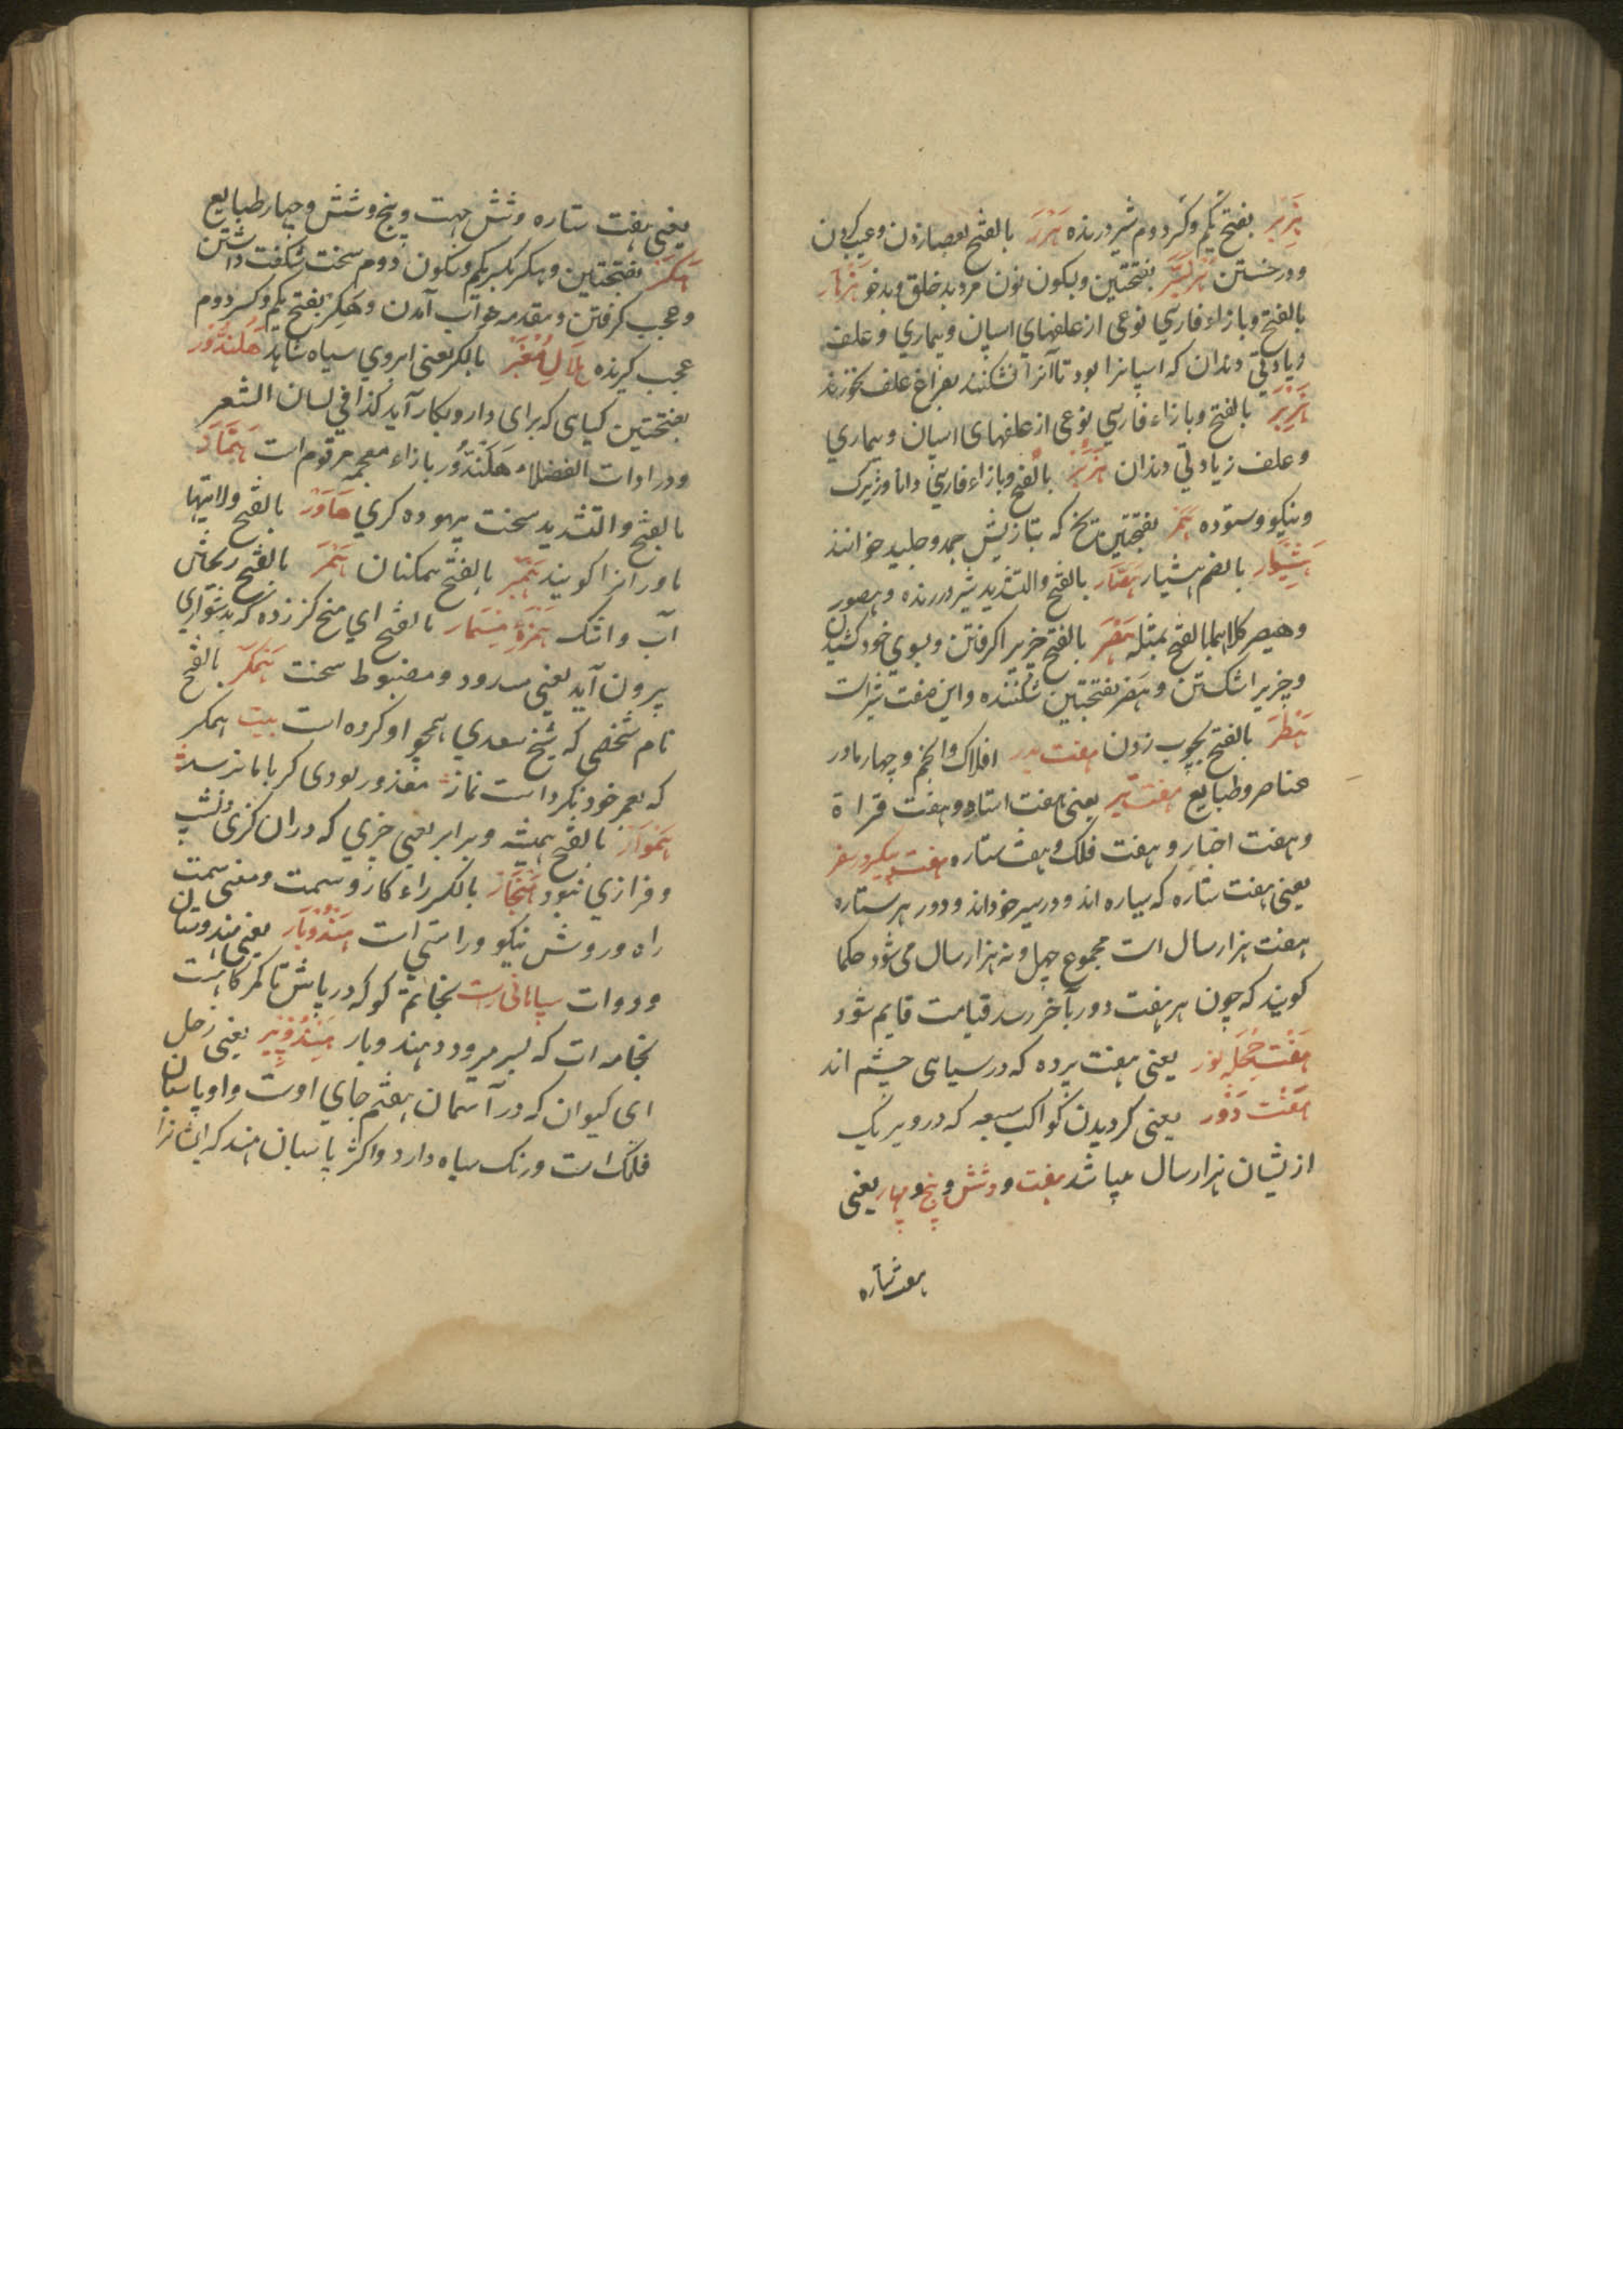 هزبر بفتح یکم و کسر دوم شیر درنده هزر بالفتح بعصا زدن و عیب کردن
و درخستن هزنبر بفتحتین و بسکون نون مرد بد خلق و بدخو هزار
بالفتح و بازاء فارسی نوعی از علفهای اسپان و بیماری و علف
زیادتی دندان که اسپانرا بود تا آنرا نشکنند بفراغ علف نخورند
هزیر بالفتح و بازاء فارسی نوعی از علفهای اسپان و بیماری
و علف زیادتی دندان هزبر بالفتح و بازاء فارسی دانا و زیرک
و نیکو و ستوده هسر بفتحتین یخ که بتازیش جمد و جلید خوانند
هشیوار بالضم هشیار هصار بالفتح والتشدید شیر درنده و هصور
و هیصر کلاهما بالفتح بمثله هصر بالفتح چیزیرا گرفتن و بسوی خود کشیدن
و چیزیرا شکستن و هصر بفتحتین شکننده و این صفت شیر است
هطر بالفتح بچوب زدن هفت پدر افلاک و انجم و چهار مادر
عناصر و طبایع هفت پیر یعنی هفت استاد و هفت قراة
و هفت اخبار و هفت فلک و هفت ستاره هفت پیکر در سفر
یعنی هفت ستاره که سیاره اند و در سیر خود اند و دور هر ستاره
هفت هزار سال است مجموع چهل و نه هزار سال می شود حکما
گویند که چون هر هفت دور بآخر رسد قیامت قایم شود
هفت حجله نور یعنی هفت پرده که در سیاهی چشم اند
هفت دور یعنی گردیدن کواکب سبعه که دور هر یک
ازیشان هزار سال میباشد هفت و وشش و پنج و چهار یعنی
هفت ستاره
یعنی هفت ستاره و شش جهت و پنج و شش و چهار طبایع
هکر بفتحتین و هکر بکسر یکم و سکون دوم سخت شگفت داشتن
و عجب گرفتن و مقدمه خواب آمدن و هکر بفتح یکم و کسر دوم
عجب گیرنده هلال معنبر بالکسر یعنی ابروی سیاه شاهد هلندور
بفتحتین گیاهی که برای دارو بکار آید کذا فی لسان الشعر
و در ادات الفضلاء هلندور بازاء معجمه مرقوم است همار
بالفتح والتشدید سخت بیهوده گری هماور بالفتح ولایتها
ماور انرا گویند همبر بالفتح همکنان همر بالفتح ریختن
آب و اشک همزه مسمار بالفتح ای میخ کز زده که بدشواری
بیرون آید یعنی مسدود و مضبوط سخت همکر بالفتح
نام شخصی که شیخ سعدی هجو او کرده است بیت همکر
که بعمر خود نکرداست نماز معذور بودی گر باما نرسد
هموار بالفتح همیشه و برابر یعنی چیزی که دران کژی و نشیب
و فرازی نبود هنجار بالکسر راء کار و سمت و معنی سمت
راه و روش نیکو و راستی است هندوبار یعنی هندوستان
و دوات سپاهانی است بخاتمه کو که در پاش تا کمر کانست
بخامه ات که بسر میرود دهند و بار هندوی پیر یعنی زحل
ای کیوان که در آسمان هفتم جای اوست و او پاسبان
فلک است و رنک سیاه دارد و اکثر پاسبان هند که ایشانرا